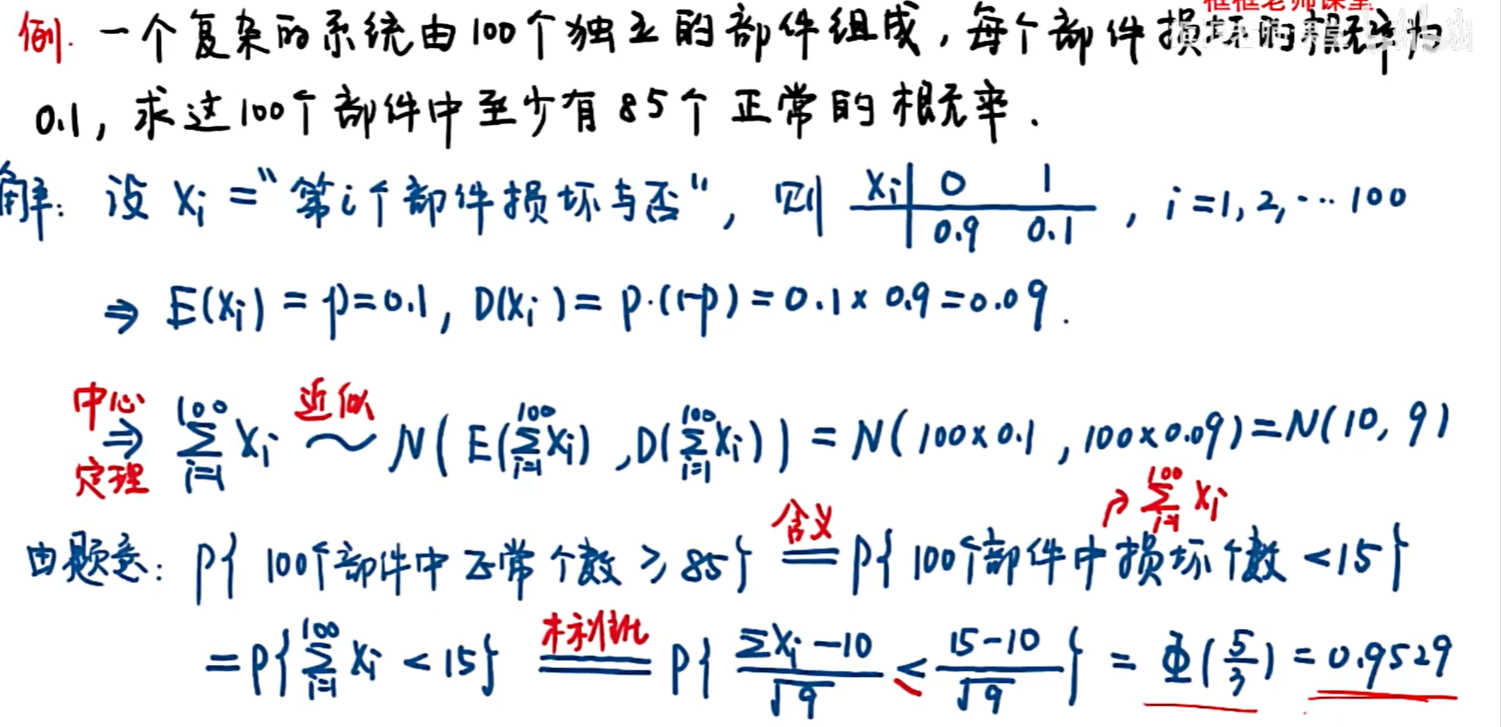 框框老师课堂
例. 一个复杂的系统由100个独立的部件组成,每个部件损坏的概率为
0.1, 求这100个部件中至少有85个正常的概率.
解: 设 Xi = "第i个部件损坏与否", 则 Xi | 0 1 , i=1,2,…100
0.9 0.1
⇒ E(Xi) = p=0.1, D(Xi) = p·(1-p) = 0.1×0.9=0.09.
中心定理 ⇒ ∑_{i=1}^{100} Xi 近似 ~ N( E(∑_{i=1}^{100} Xi), D(∑_{i=1}^{100} Xi) ) = N(100×0.1, 100×0.09) = N(10, 9)
↗ ∑_{i=1}^{100} Xi
由题意: P{ 100个部件中正常个数 ≥ 85 } 含义 = P{ 100个部件中损坏个数 < 15 }
= P{ ∑_{i=1}^{100} Xi < 15 } 标准化 = P{ (∑Xi - 10)/√9 ≤ (15-10)/√9 } = Φ(5/3) = 0.9529